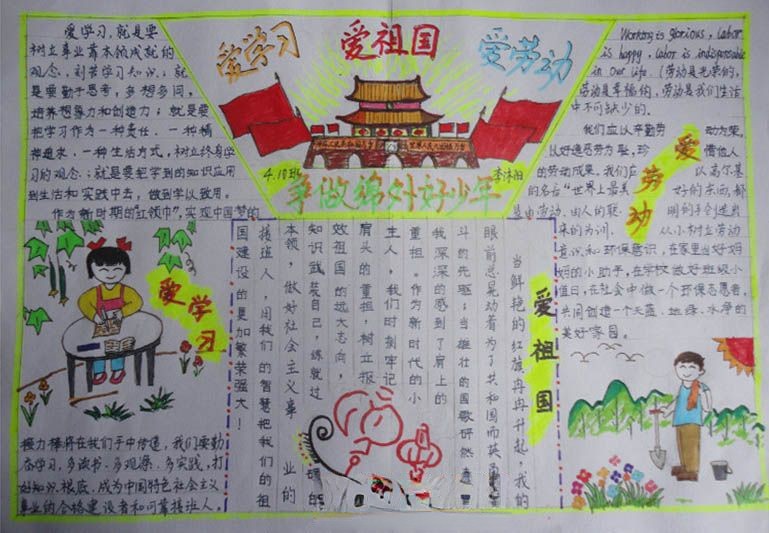 爱学习
爱祖国
爱劳动
4.10班
李沐阳
争做绵外好少年
爱学习,就是要
树立事业靠本领成就的
观念,刻苦学习知识;就
是要勤于思考,多想多问,
培养想象力和创造力;就是要
把学习作为一种责任、一种精
神追求、一种生活方式,树立终身学
习的观念;就是要把学到的知识应用
到生活和实践中去,做到学以致用。
作为新时期的"红领巾",实现中国梦的
爱学习
接力棒将在我们手中传递,我们要勤
奋学习,多读书、多观察、多实践,打
好知识根底,成为中国特色社会主义
事业的合格建设者和可靠接班人。
爱祖国
当鲜艳的红旗冉冉升起,我的
眼前总晃动着为了共和国而英勇
斗的先驱;当雄壮的国歌
我深深的感到了肩上的
重担。作为新时代的小
主人,我们时刻牢记
肩头的重担,树立报
效祖国的远大志向,
知识武装自己,练就过
本领,做好社会主义事业的
接班人,用我们的智慧把我们的祖
国建设的更加繁荣强大!
Working is glorious, Labor
is happy, Labor is indispensable
in our life.(劳动是光荣的,
劳动是幸福的,劳动是我们生活
中不可缺少的。
爱劳动
我们应以辛勤劳动为荣,
以好逸恶劳为耻,珍惜他人
的劳动成果。我们应以高尔基
的名言"世界上最美好的东西,都
是由劳动、由人的聪明的手创造出
来的为训、从小树立劳动
意识和环保意识,在家里当好妈
妈的小助手,在学校做好班级小
值日,在社会中做一个环保志愿者,
共同创造一个天蓝、地绿、水净的
美好家园。